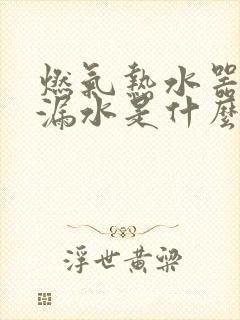 燃氣熱水器
漏水是什麼
浮世黄梁